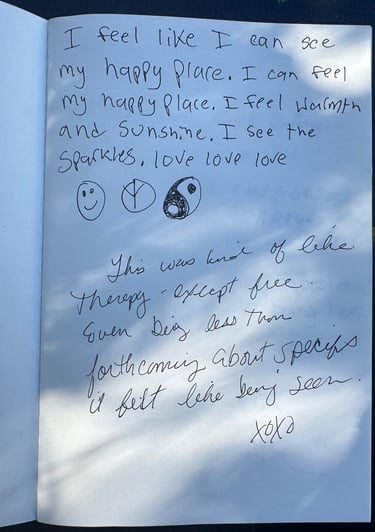 I feel like I can see
my happy place. I can feel
my happy place. I feel warmth
and sunshine. I see the
sparkles. love love love
This was kind of like
therapy - except free.
Even being less than
forthcoming about specifics
it felt like being seen.
XOXO